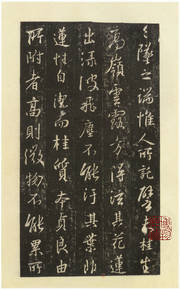 〻墜之端惟人所託譬夫桂生
高嶺雲露方得泫其花蓮
出淥波飛塵不能汙其葉非
蓮性自潔而桂質本貞良由
所附者高則微物不能累所